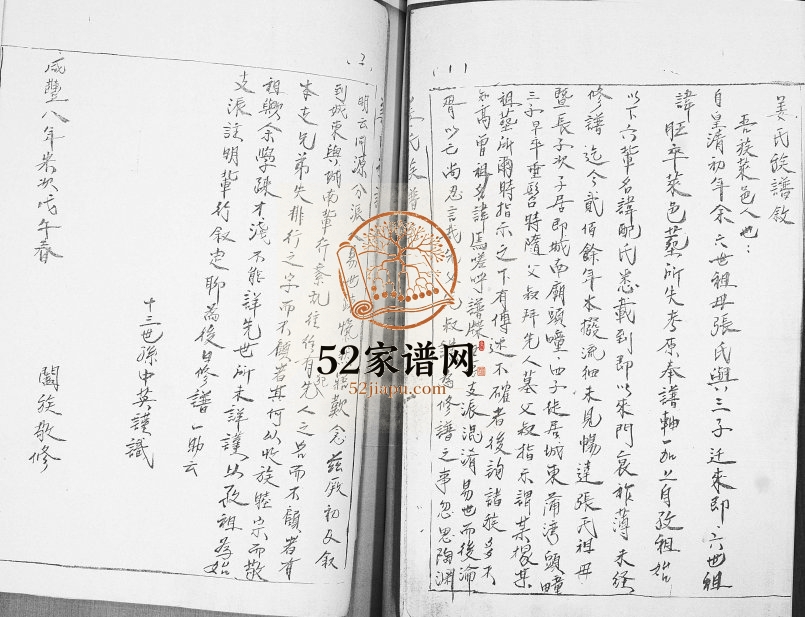 (1)
姜氏族譜敘
吾族萊邑人也:
自皇清初年余六世祖母張氏與三子迁來即六世祖
諱旺卒萊邑塟所失考原奉譜軸一加上自致祖始
以下六輩名諱配氏悉載到即以來門衰祚薄未經
修譜迄今貳佰餘年本撥流徂未見暢達張氏祖母
暨長子次子居即城南廟頭疃四子徙居城東蒲湾頭疃
三子早卒垂髫時隨父叔拜先人墓父叔指示謂某塚某
祖墓所爾時指示之下有傳述不確者後詢諸族多不
知高曾祖名諱焉嗟呼譜牒 支派混淆易世而後淪
胥以亡尚忍言哉 父叔 為修譜之事忽思陶淵
(2)
明云同源分派人易世疎慨 歎念茲厥初又叙
到城東與城南輩行紊乱往往有先人之名而不顧者有
本支兄弟失排行之字而不顧者其何以收族睦宗而敬
祖歟余學疎才淺不能詳先世所未詳謹以致祖為始
支派註明輩行叙定聊為後日修譜一助云
十三世孫中英謹識
闔族敬修
咸豐八年米次戊午春
52家谱网
52jiapu.com